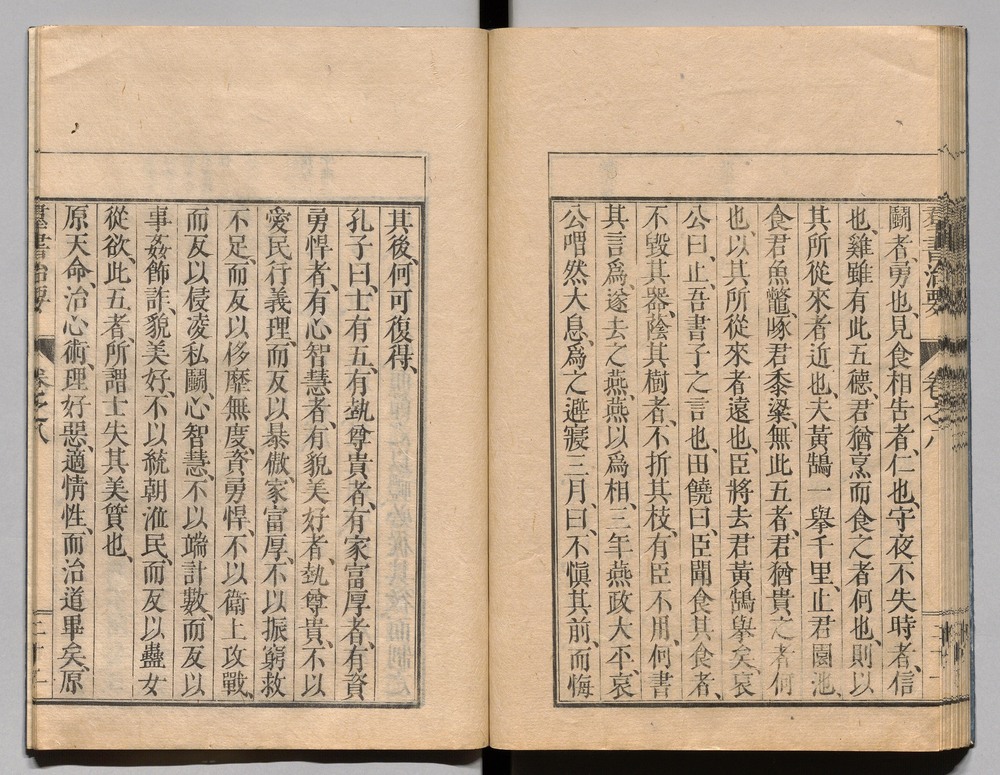 羣書治要 卷之八
鬭者、勇也、見食相告者、仁也、守夜不失時者、信
也、雞雖有此五德、君猶烹而食之者何也、則以
其所從來者近也、夫黃鵠一擧千里、止君園池、
食君魚鼈、啄君黍粱、無此五者、君猶貴之者何
也、以其所從來者遠也、臣將去君黃鵠擧矣、哀
公曰、止、吾書子之言也、田饒曰、臣聞食其食者、
不毀其器、蔭其樹者、不折其枝、有臣不用、何書
其言爲、遂去之燕、燕以爲相、三年燕政大平、哀
公喟然大息、爲之避寢三月、曰、不愼其前、而悔
其後、何可復得、
孔子曰、士有五、有埶尊貴者、有家富厚者、有資
勇悍者、有心智慧者、有貌美好者、埶尊貴、不以
愛民行義理、而反以暴傲、家富厚、不以振窮救
不足、而反以侈靡無度、資勇悍、不以衞上攻戰、
而反以侵凌私鬭、心智慧、不以端計數、而反以
事姦飾詐、貌美好、不以統朝涖民、而反以蠱女
從欲、此五者、所謂士失其美質也、
原天命、治心術、理好惡、適情性、而治道畢矣、原
羣書治要 卷之八 二十二